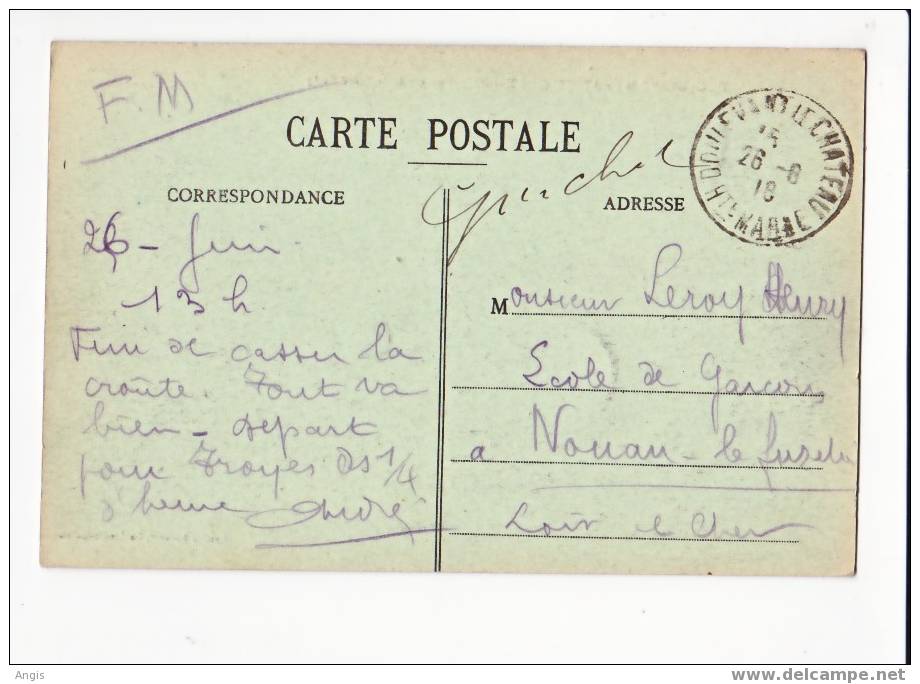 F.M
CARTE POSTALE
CORRESPONDANCE
ADRESSE
DOULEVANT LE CHATEAU
15
26 -6
18
HTE MARNE
26 - Juin
13 h
Fini de casser la
croûte. Tout va
bien - départ
pour Troyes ds 1/4
d'heure André
Monsieur Leroy Henry
Ecole de Garçons
a Nouan-le fuzelier
Loir et Cher
Angis
www.delcampe.net